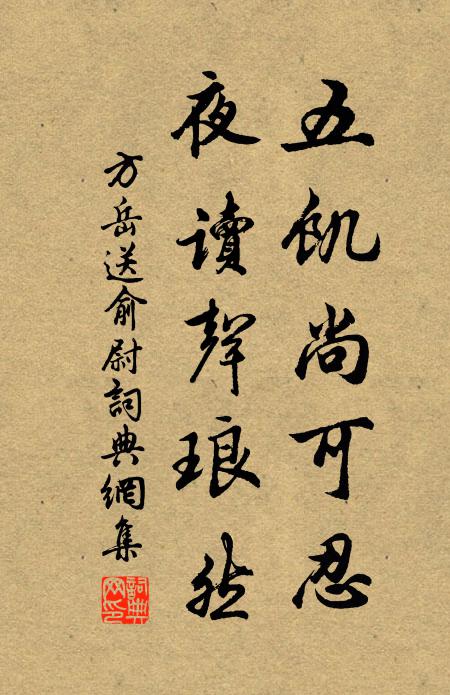 五飢尚可忍
夜讀聲琅然
方岳送俞尉詞典網集
詞典網印